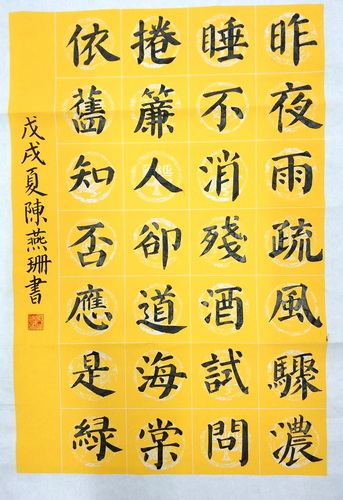 昨夜雨疏風驟濃
睡不消殘酒試問
捲簾人卻道海棠
依舊知否應是綠
戊戌夏陳燕珊書